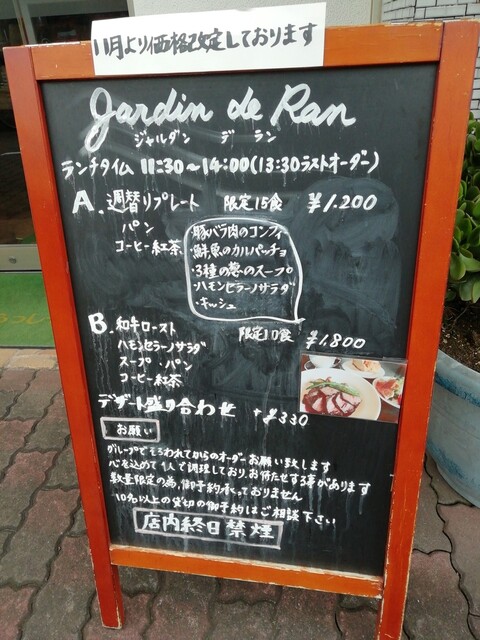 11月より価格改定しております
Jardin de Ran
ジャルダン デ ラン
ランチタイム 11:30～14:00(13:30ラストオーダー)
A. 週替りプレート 限定15食 ¥1.200
パン
コーヒー紅茶
・豚バラ肉のコンフィ
・鮮魚のカルパッチョ
・3種の葱のスープ
・ハモンセラーノサラダ
・キッシュ
B. 和牛ロースト 限定10食 ¥1.800
ハモンセラーノサラダ
スープ・パン
コーヒー紅茶
デザート盛り合わせ +¥330
お願い
グループでそろわれてからのオーダーお願い致します
心を込めて1人で調理しており、お待たせする事があります
数量限定の為、御予約承っておりません
10名以上の貸切の御予約はご相談下さい
店内終日禁煙